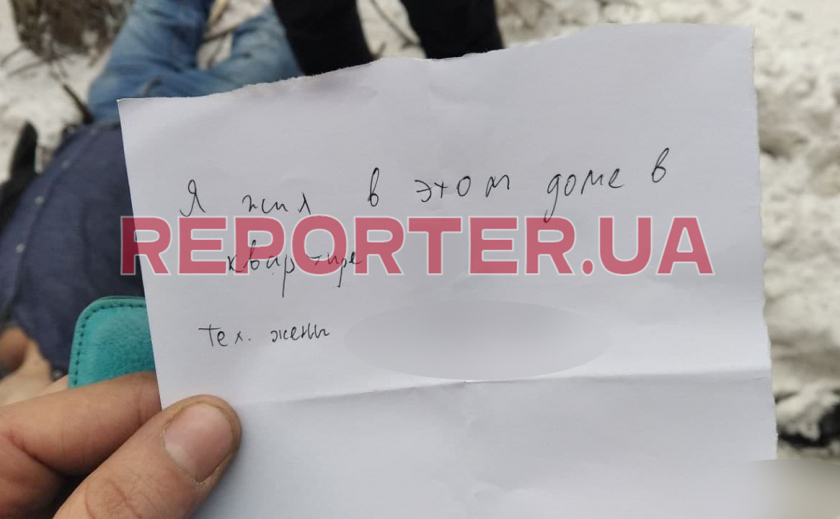 Я жил в этом доме в
REPORTER.UA
квартире
тел. жены